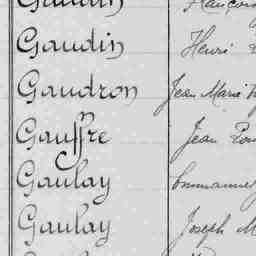 Gaudin Henri
Gaudron Jean Marie
Gauffre Jean
Gaulay Emmanuel
Gaulay Joseph M